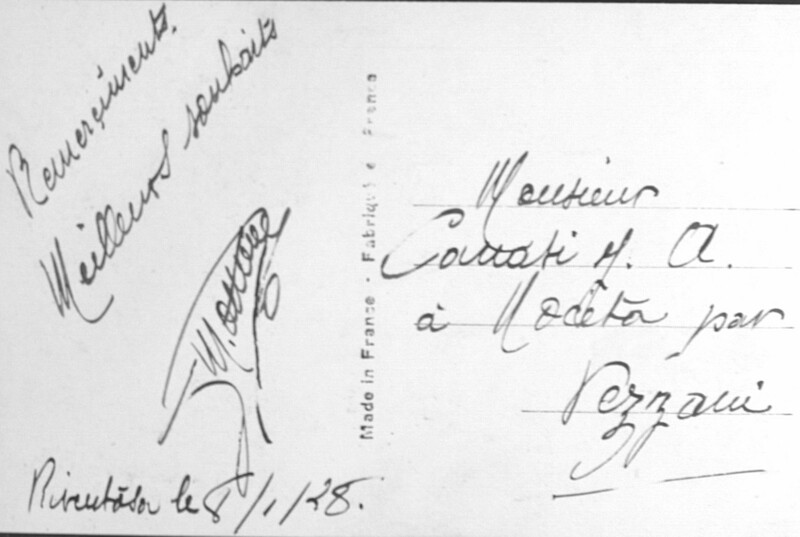 Remerciments.
Meilleurs souhaits
Riventosa le 8/1/28.
Made in France - Fabriqué e France
Monsieur
Canati A.
à Nocéta par
Vezzani